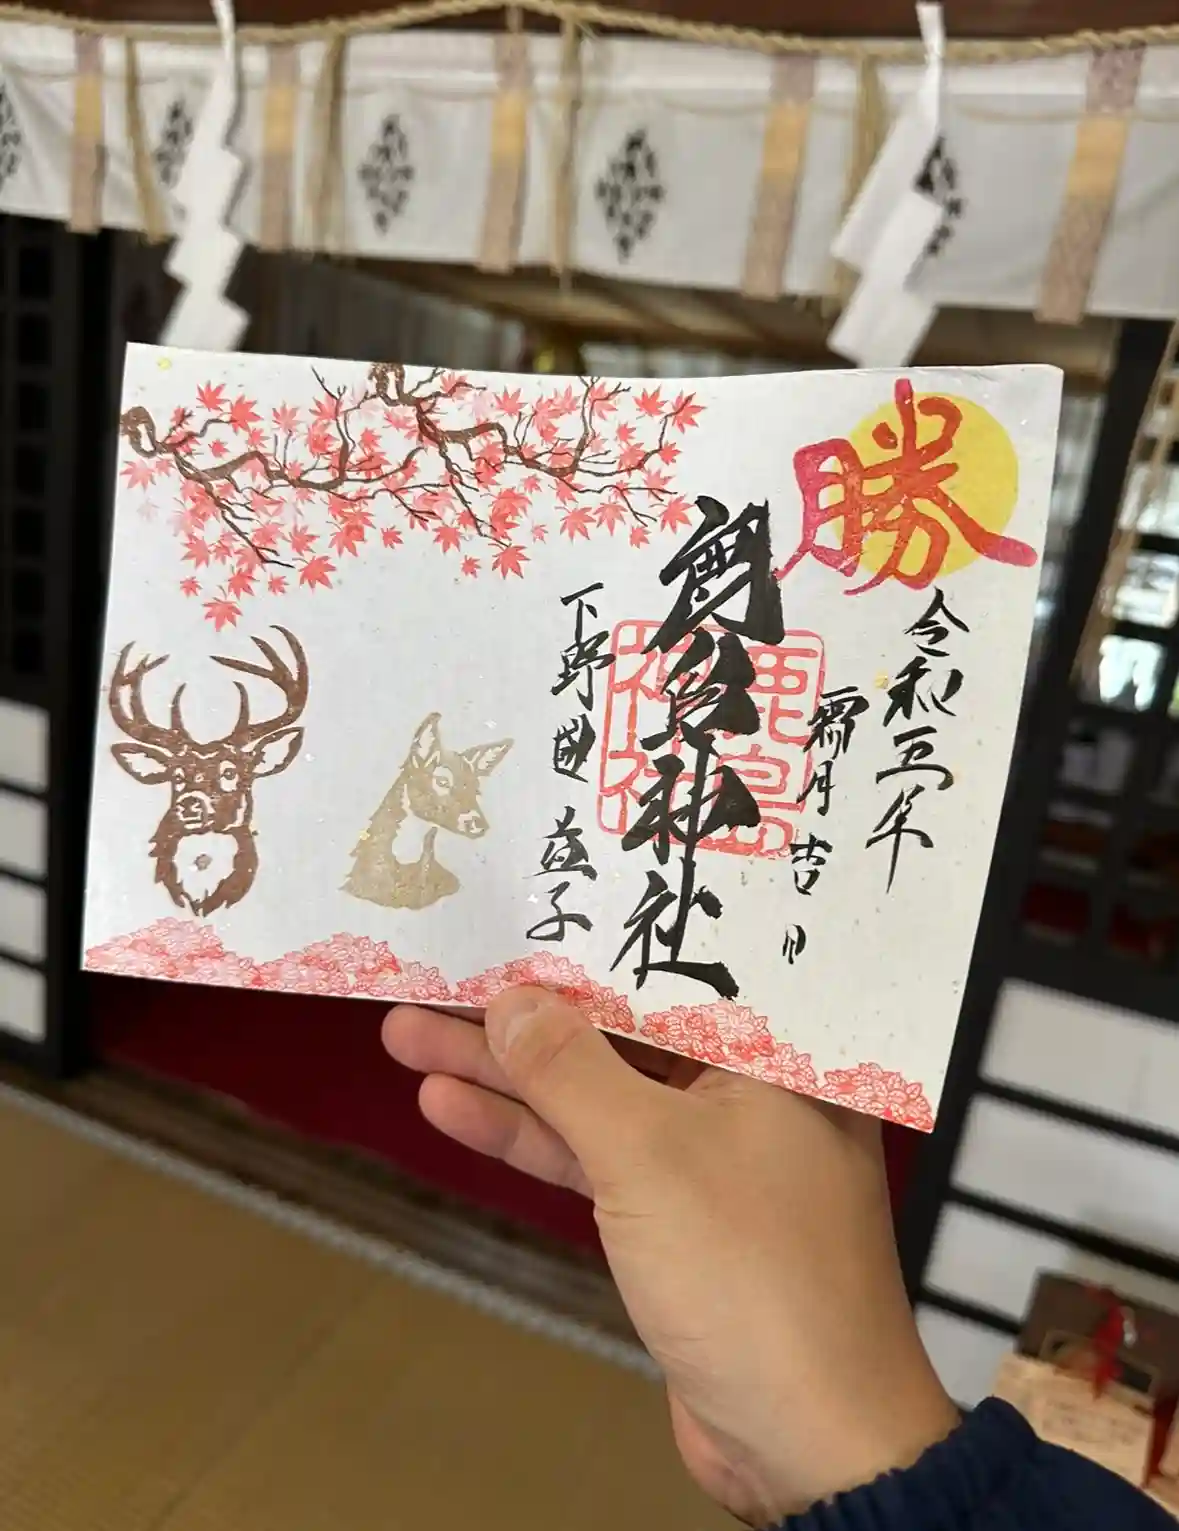 勝
令和五年
霜月吉日
鹿島神社
鹿島神社
下野國 益子